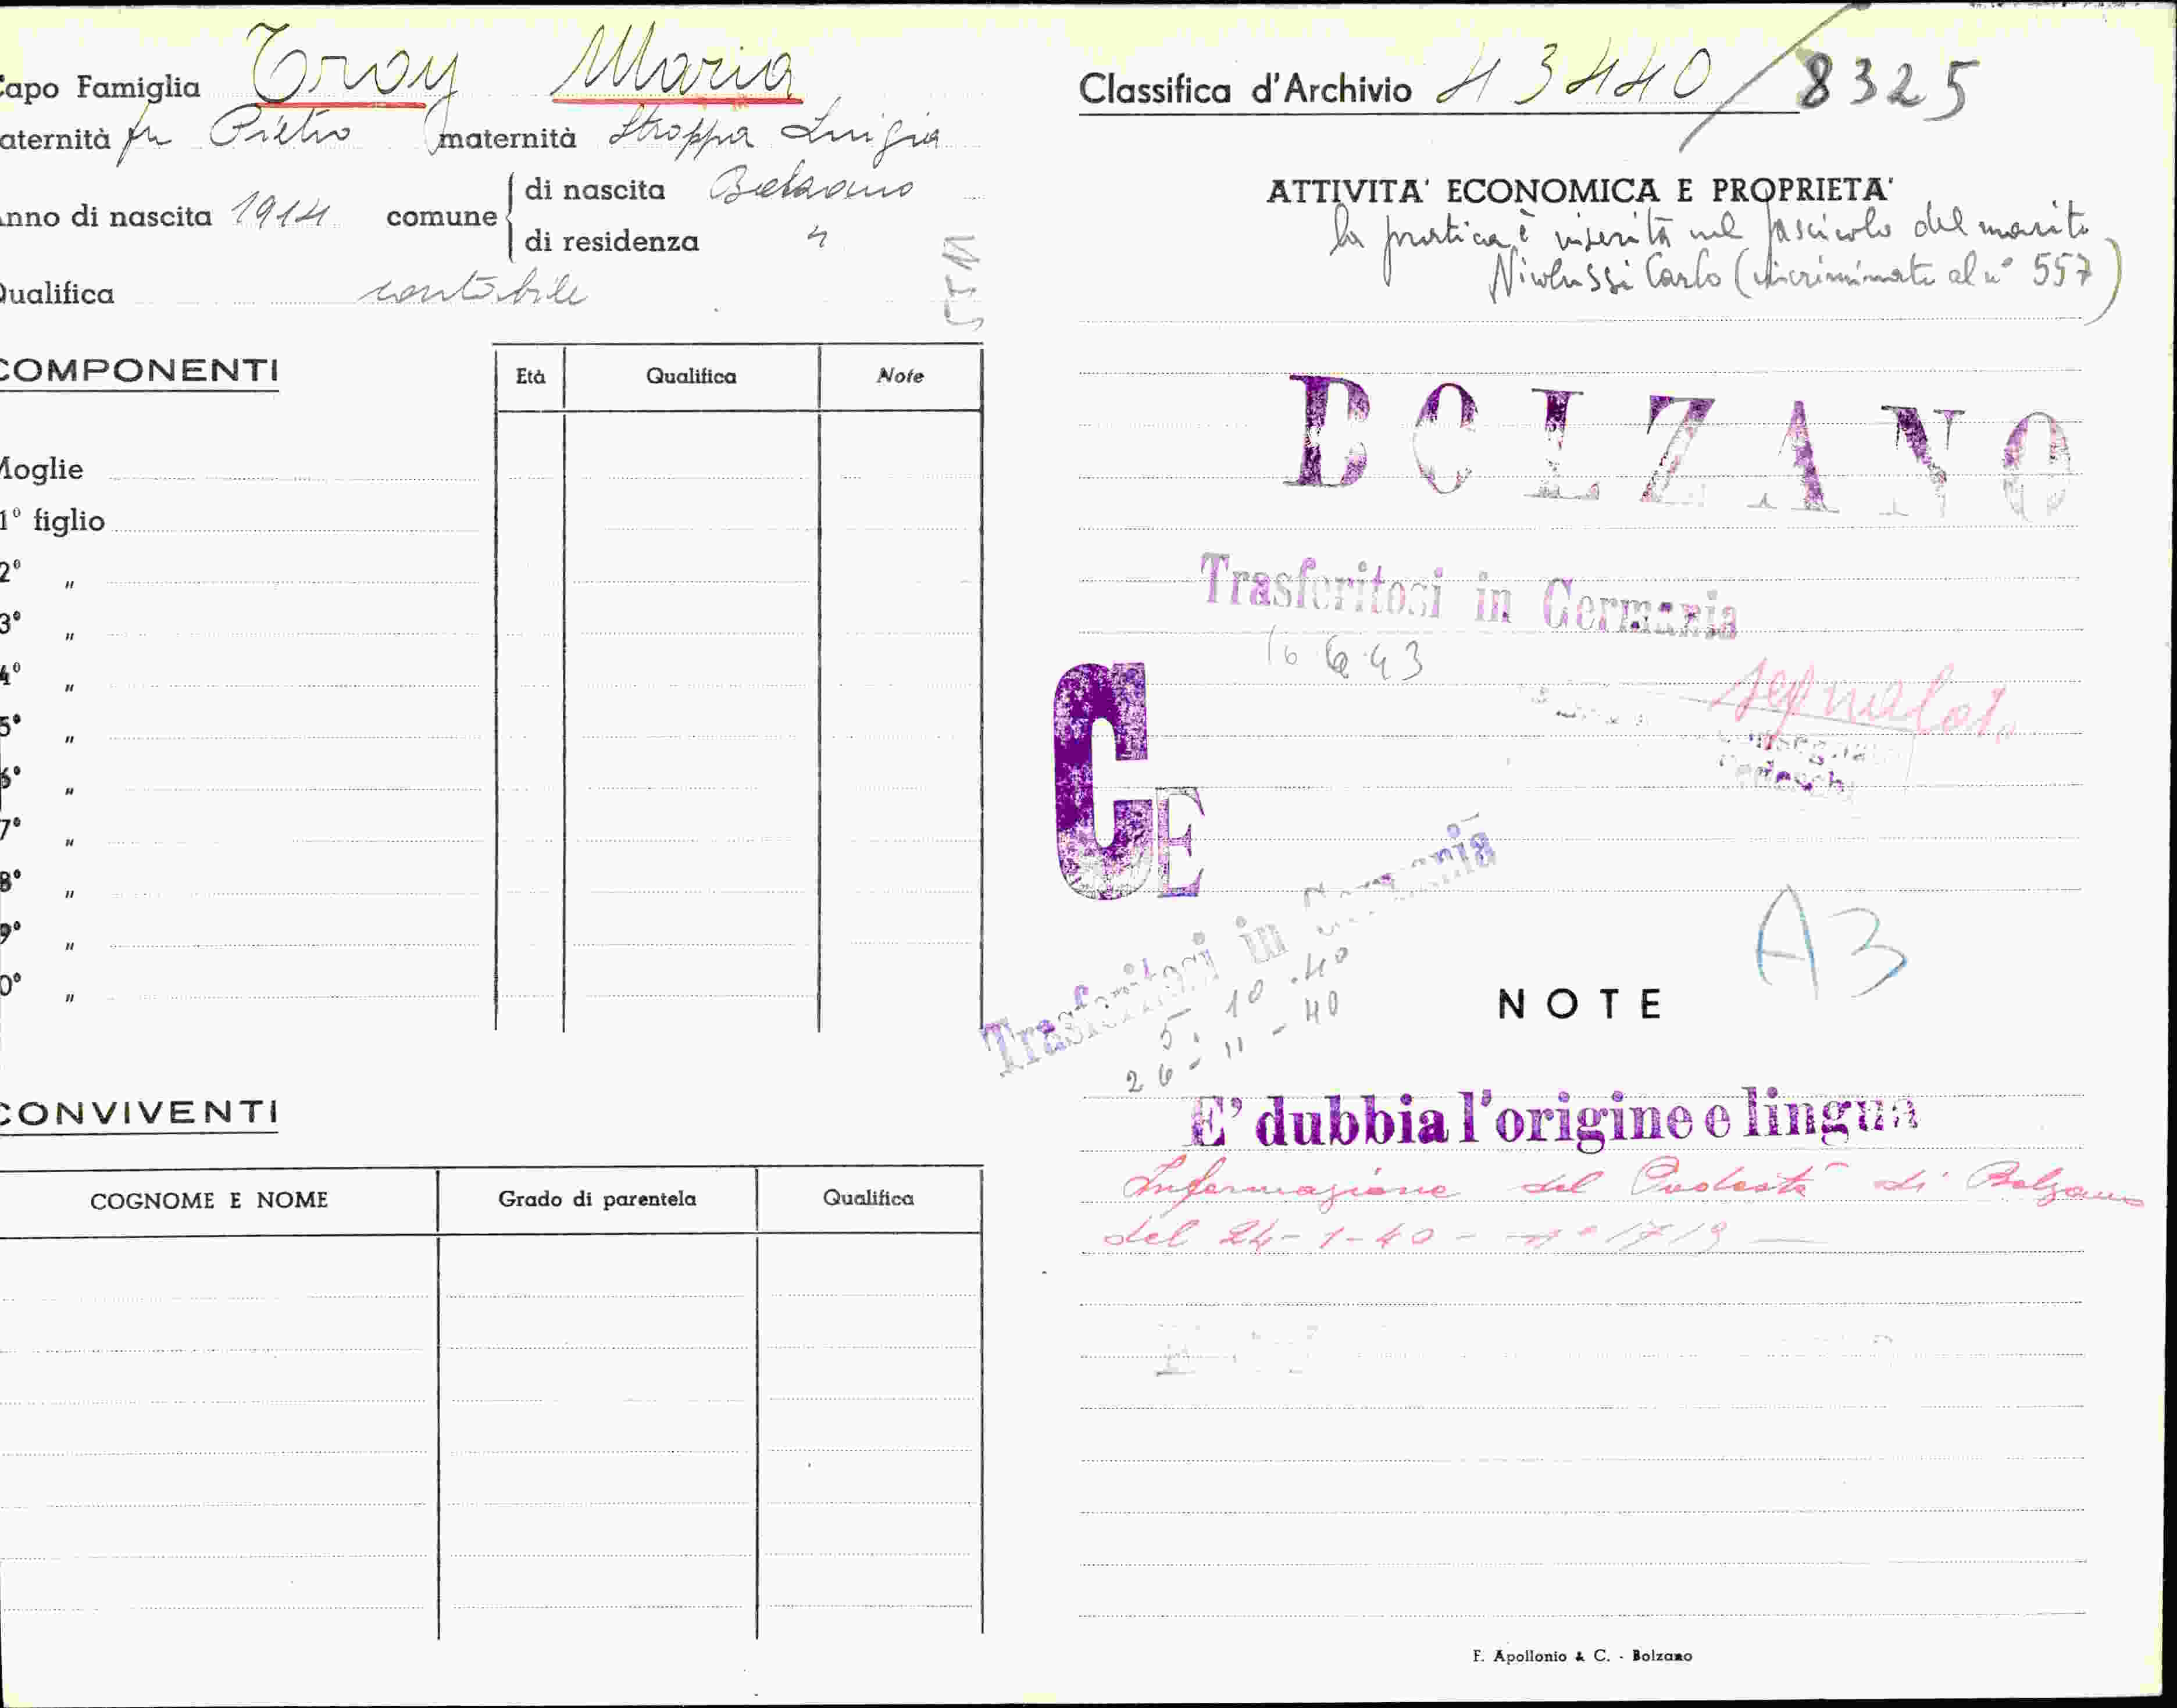 Capo Famiglia Troy Maria
aternità fu Pietro maternità Stroppa Luigia
Anno di nascita 1914 comune di nascita Bolzano
di residenza "
Qualifica contabile
COMPONENTI
Età Qualifica Note
Moglie
1º figlio
2º "
3º "
4º "
5º "
6º "
7º "
8º "
9º "
0º "
CONVIVENTI
COGNOME E NOME Grado di parentela Qualifica
Classifica d'Archivio 43440/8325
ATTIVITA' ECONOMICA E PROPRIETA'
la pratica è inserita nel fascicolo del marito
Nicolussi Carlo (incriminato al n° 557)
BOLZANO
Trasferitosi in Germania
16 6 43
segnalat.
Consegnat
Tedeschi
CE
Trasferitosi in Germania
5. 10. 40
26 - 11 - 40
A3
NOTE
E' dubbia l'origine e lingua
Informazione del Podestà di Bolzano
del 24-1-40 - n° 1719 —
F. Apollonio & C. - Bolzano